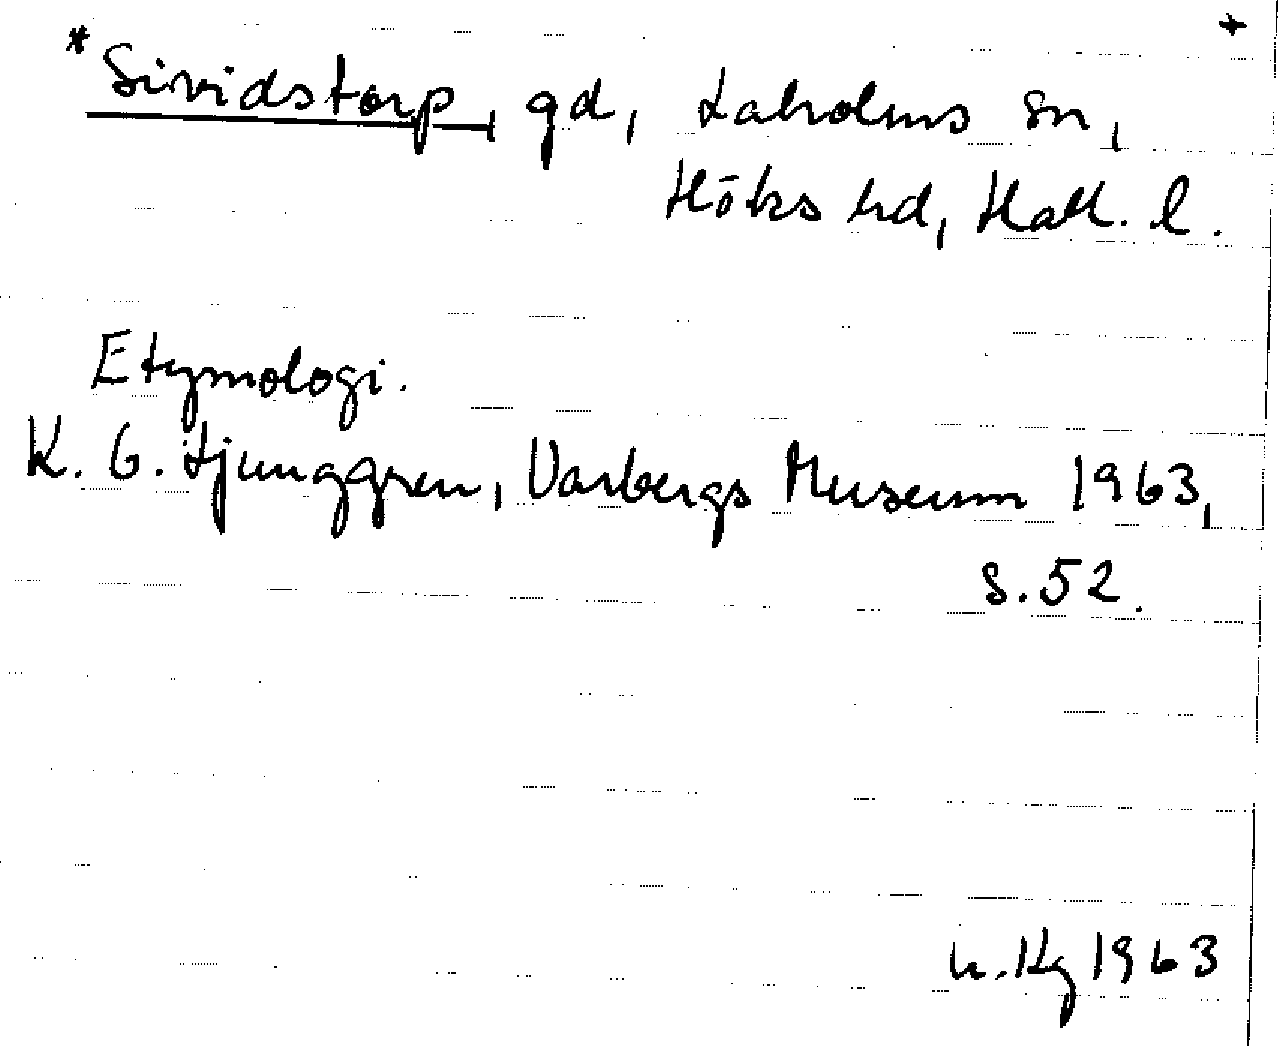 * Sividstorp, gd, Laholms sn, +
Höks hd, Hall. l.
Etymologi.
K. G. Ljunggren, Varbergs Museum 1963,
s. 52.
h. Kg 1963